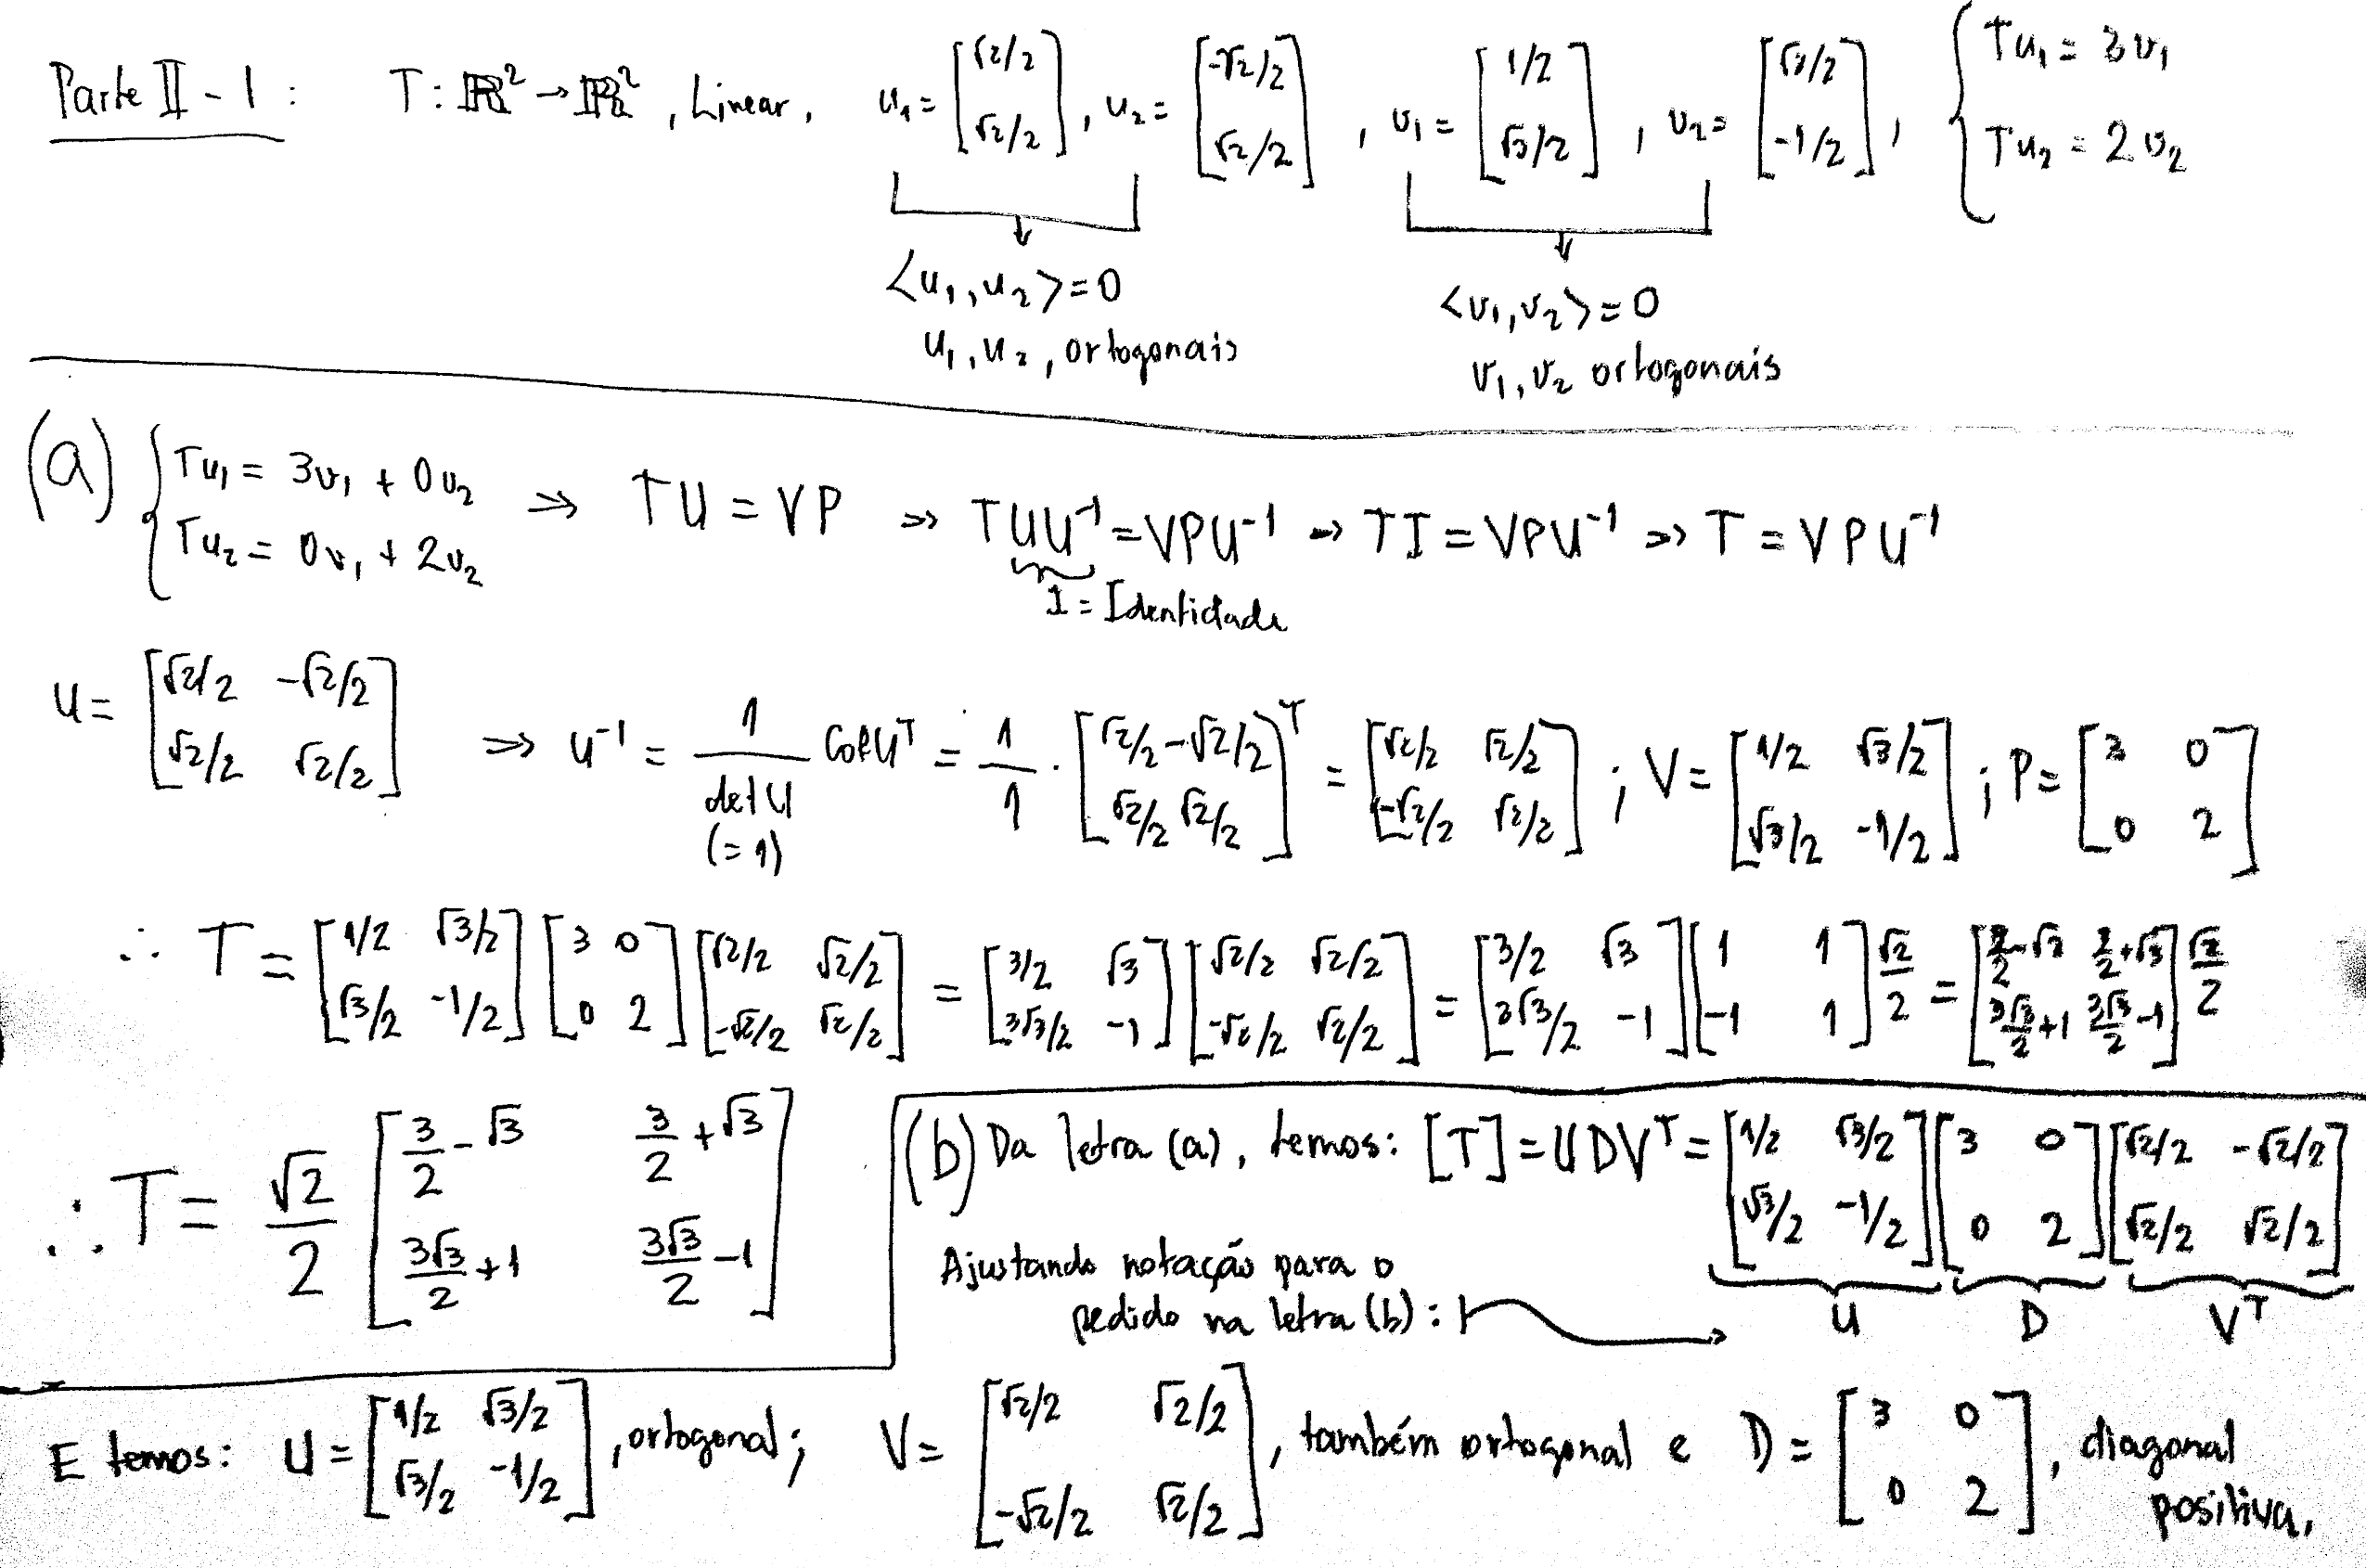 Parte II - 1 : T : ℝ² → ℝ², Linear, u₁ = [√2/2 ; √2/2], u₂ = [-√2/2 ; √2/2], v₁ = [1/2 ; √3/2], v₂ = [√3/2 ; -1/2], { Tu₁ = 3v₁ ; Tu₂ = 2v₂
<u₁, u₂> = 0
u₁, u₂, ortogonais
<v₁, v₂> = 0
v₁, v₂ ortogonais
(a) { Tu₁ = 3v₁ + 0v₂ ; Tu₂ = 0v₁ + 2v₂ ⇒ TU = VP ⇒ TUU⁻¹ = VPU⁻¹ ⇒ TI = VPU⁻¹ ⇒ T = VPU⁻¹
I = Identidade
U = [√2/2 -√2/2 ; √2/2 √2/2] ⇒ U⁻¹ = 1/det U (=1) Cof Uᵀ = 1/1 · [√2/2 -√2/2 ; √2/2 √2/2]ᵀ = [√2/2 √2/2 ; -√2/2 √2/2] ; V = [1/2 √3/2 ; √3/2 -1/2] ; P = [3 0 ; 0 2]
∴ T = [1/2 √3/2 ; √3/2 -1/2] [3 0 ; 0 2] [√2/2 √2/2 ; -√2/2 √2/2] = [3/2 √3 ; 3√3/2 -1] [√2/2 √2/2 ; -√2/2 √2/2] = [3/2 √3 ; 3√3/2 -1] [1 1 ; -1 1] √2/2 = [3/2-√3 3/2+√3 ; 3√3/2+1 3√3/2-1] √2/2
∴ T = √2/2 [3/2 - √3 3/2 + √3 ; 3√3/2 + 1 3√3/2 - 1]
(b) Da letra (a), temos: [T] = UDVᵀ = [1/2 √3/2 ; √3/2 -1/2] [3 0 ; 0 2] [√2/2 -√2/2 ; √2/2 √2/2]
U D Vᵀ
Ajustando notação para o
pedido na letra (b) :
E temos: U = [1/2 √3/2 ; √3/2 -1/2], ortogonal; V = [√2/2 √2/2 ; -√2/2 √2/2], também ortogonal e D = [3 0 ; 0 2], diagonal
positiva.